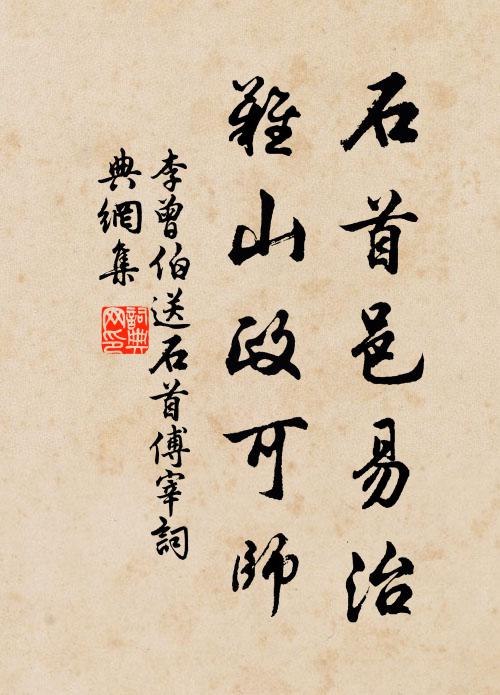 石首邑易治
難山政可師
李曾伯送石首傅宰詞
典網集
詞典
网印